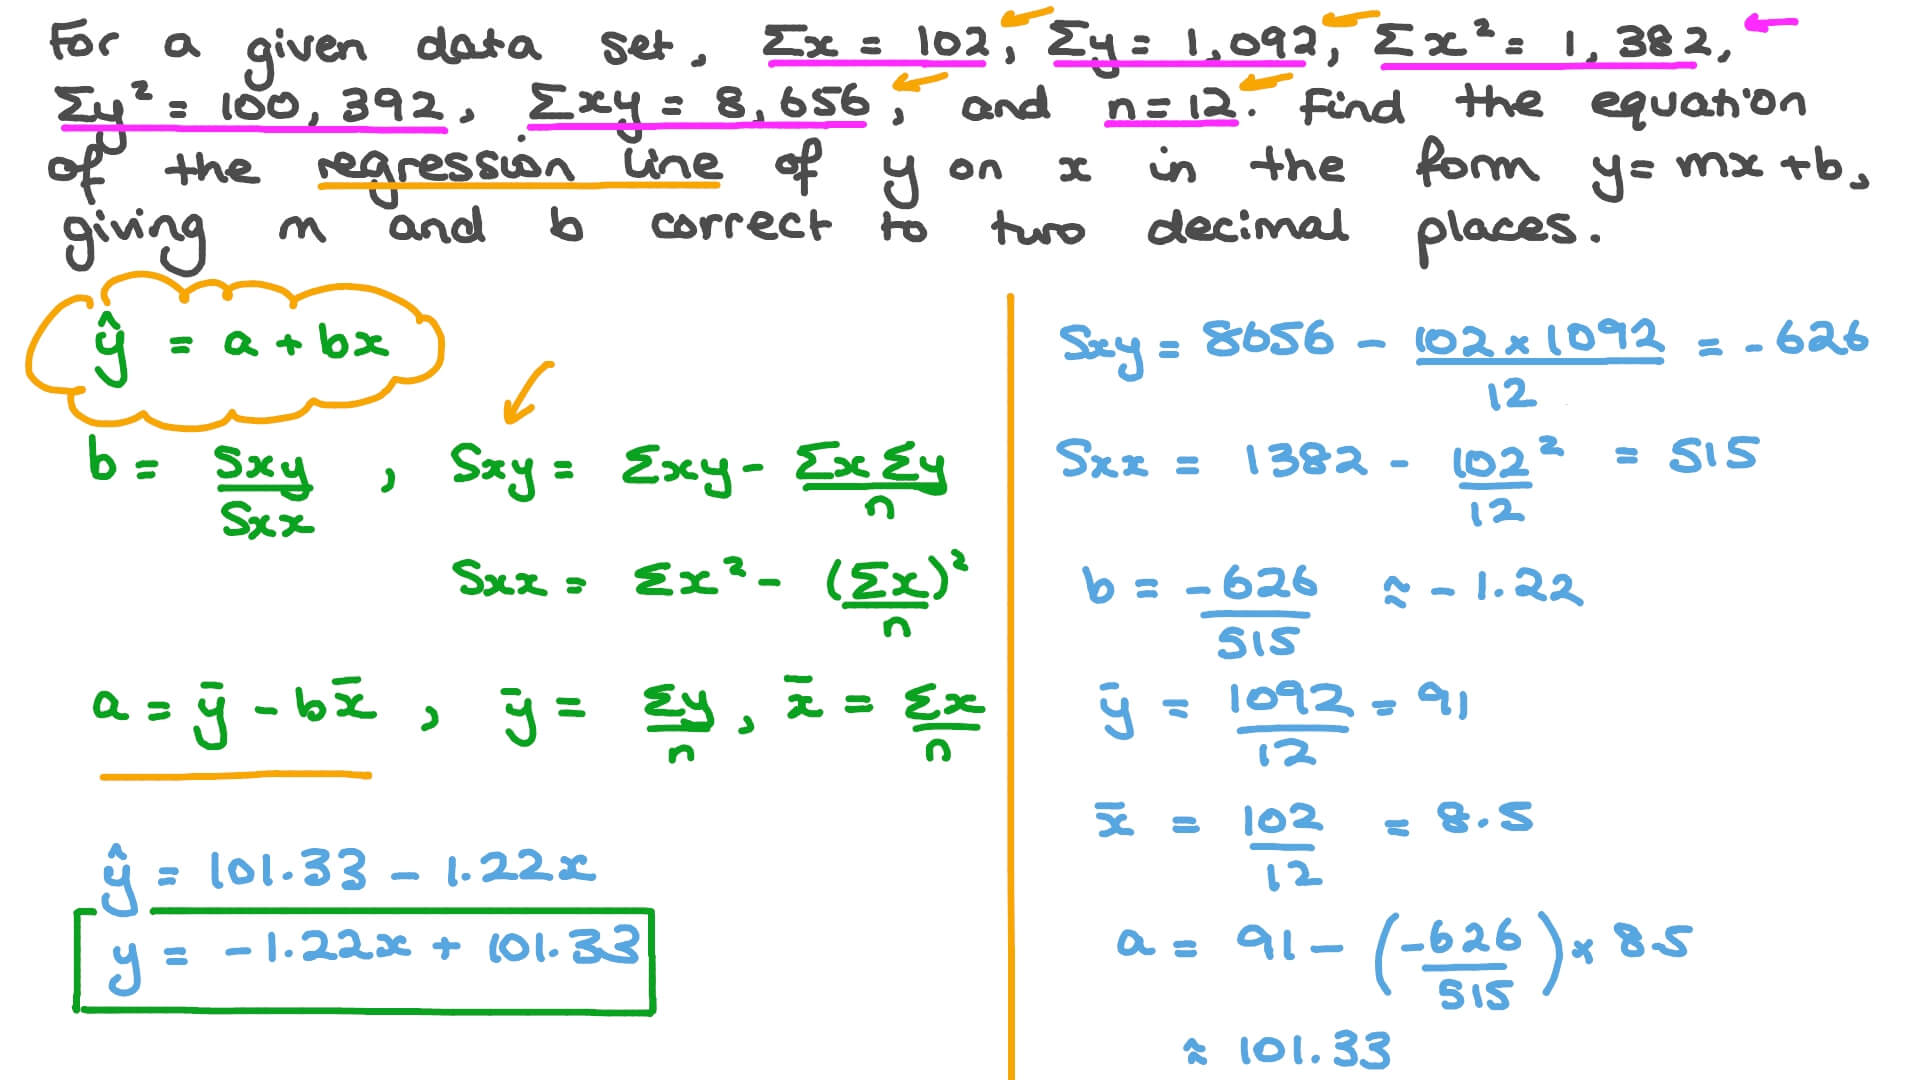 For a given data set, Σx = 102, Σy = 1,092, Σx² = 1,382,
Σy² = 100,392, Σxy = 8,656, and n = 12. Find the equation
of the regression line of y on x in the form y = mx + b,
giving m and b correct to two decimal places.
ŷ = a + bx
b = Sxy/Sxx , Sxy = Σxy - ΣxΣy/n
Sxx = Σx² - (Σx)²/n
a = ȳ - bx̄ , ȳ = Σy/n, x̄ = Σx/n
ŷ = 101.33 - 1.22x
y = -1.22x + 101.33
Sxy = 8656 - 102 × 1092/12 = -626
Sxx = 1382 - 102²/12 = 515
b = -626/515 ≈ -1.22
ȳ = 1092/12 = 91
x̄ = 102/12 = 8.5
a = 91 - (-626/515) × 8.5
≈ 101.33